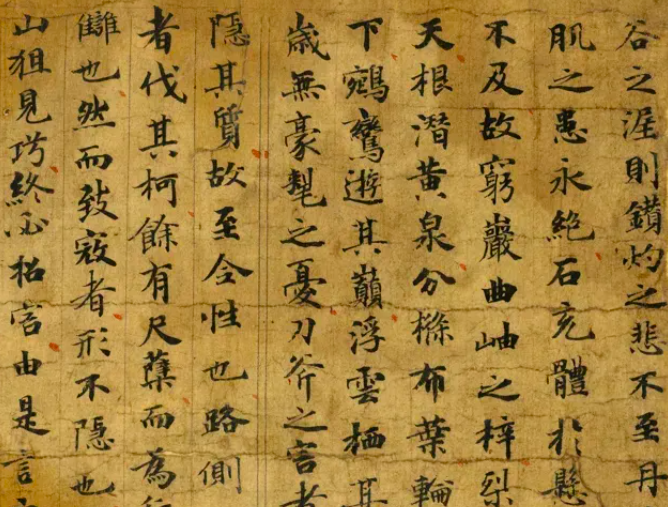 谷之涯則鑽灼之悲不至丹
肌之患永絶石亢體扵懸
不及故窮巖曲岫之梓梨
天根潛黄泉分條布葉輪
下鵷鸞遊其巔浮雲栖其
歳無豪氂之憂刃斧之害者
隱其質故至全性也路側
者伐其柯餘有尺蘖而為
讎也然而致寇者形不隱也
山狙見巧終必招害由是言